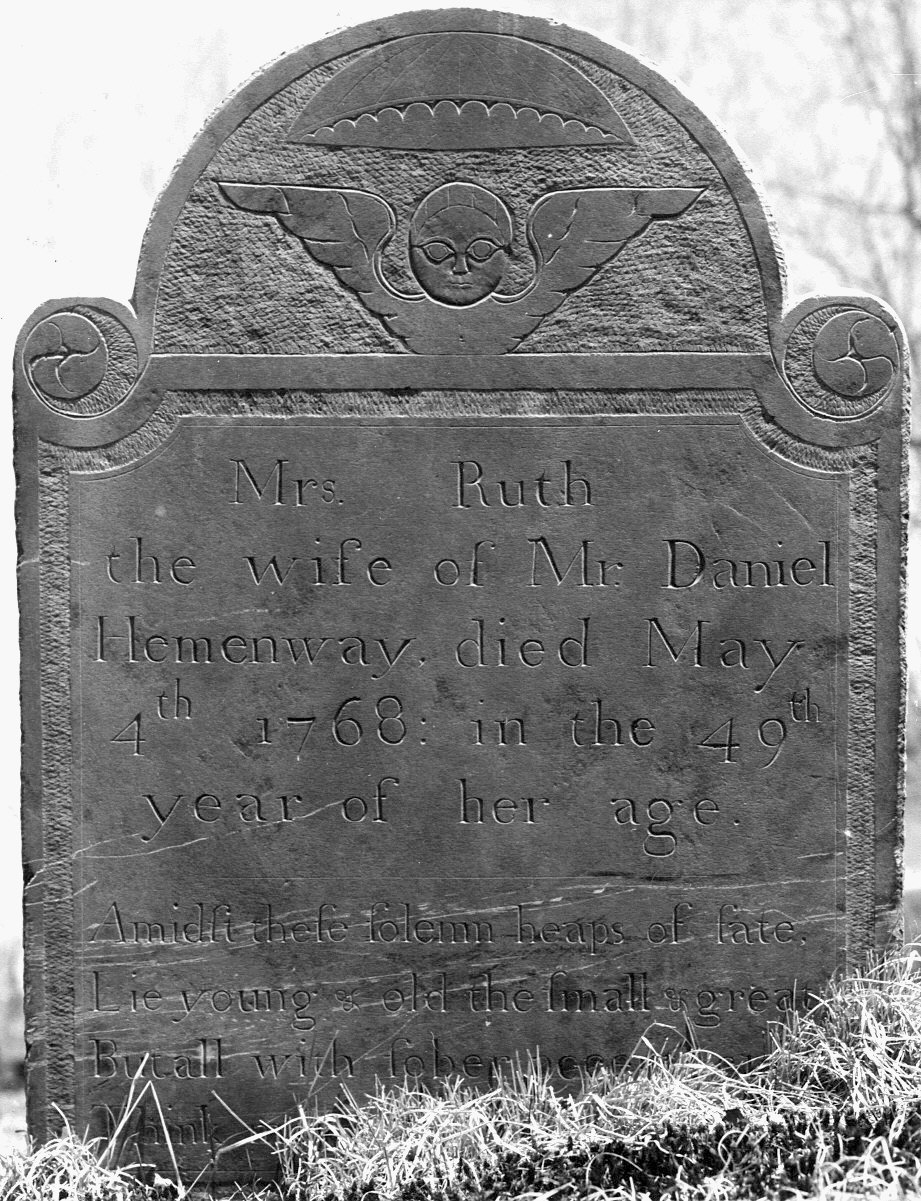 Mrs. Ruth
the wife of Mr. Daniel
Hemenway, died May
4th 1768: in the 49th
year of her age.
Amidſt theſe ſolemn heaps of fate,
Lie young & old the ſmall & great
But all with ſober
Think